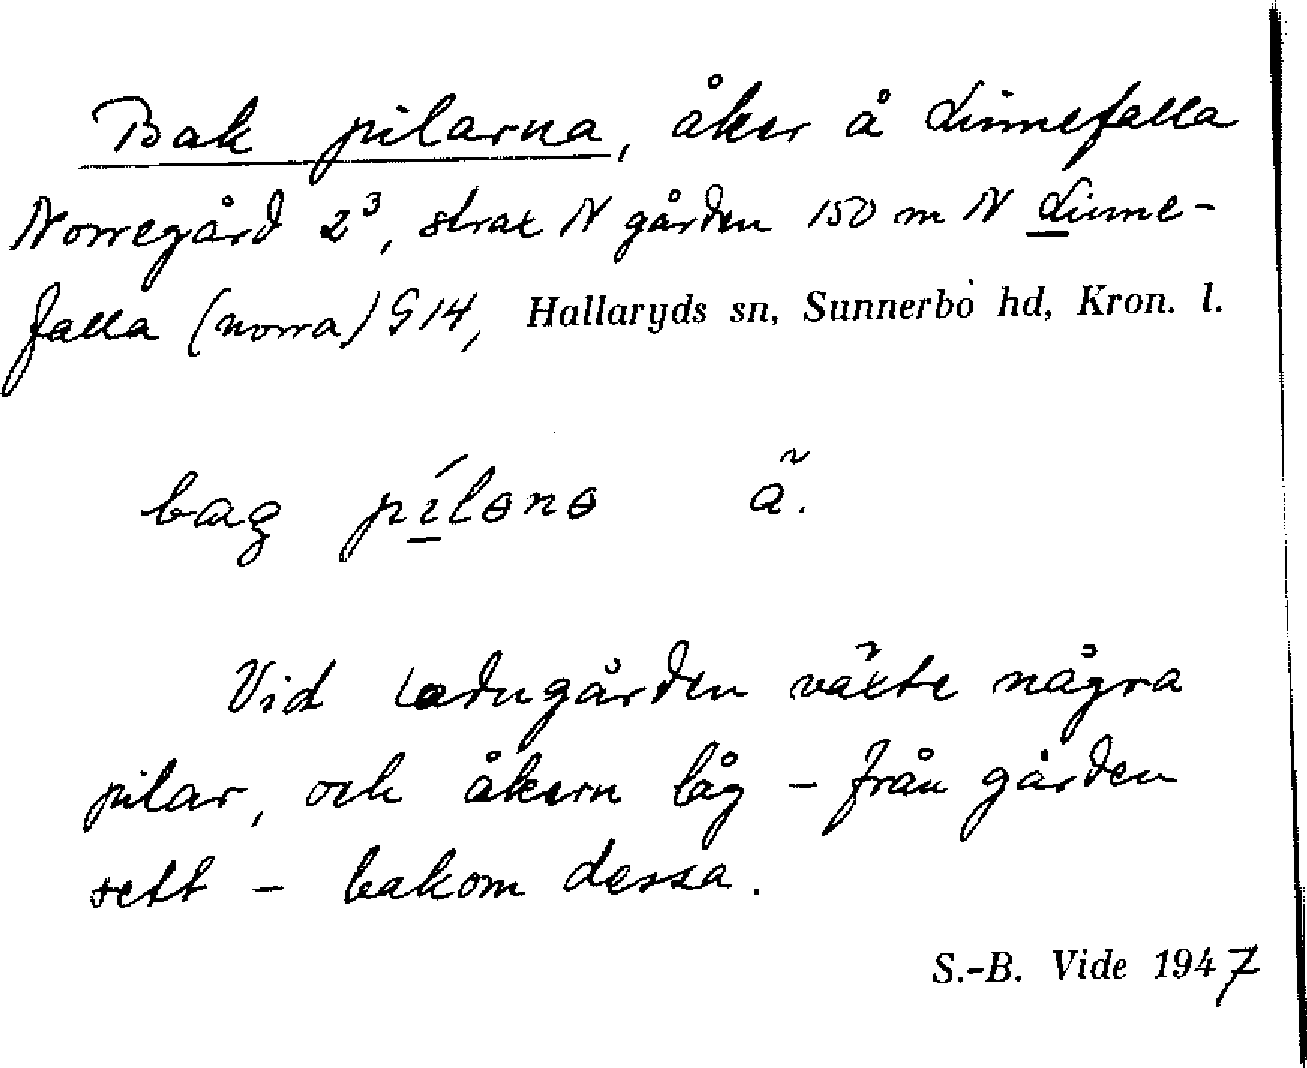 Bak pilarna, åker å Linnefalla
Norregård 2³, strax N gården 150 m N Linne-
falla (norra) G14, Hallaryds sn, Sunnerbo hd, Kron. l.
bag pílɵnɵ ã.
Vid ladugården växte några
pilar, och åkern låg – från gården
sett – bakom dessa.
S.-B. Vide 1947